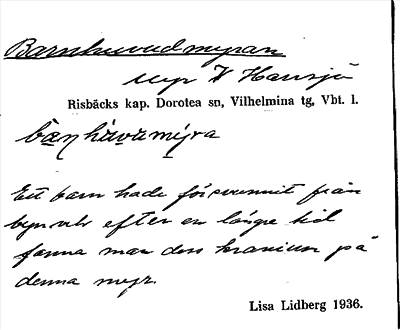 Barnhuvudmyran
myr V Hansjö
Risbäcks kap. Dorotea sn, Vilhelmina tg, Vbt. l.
ba̱ṇhu̇vu̇mi̱ra
Ett barn hade försvunnit från
byn och efter en längre tid
fanna man dess kranium på
denna myr.
Lisa Lidberg 1936.